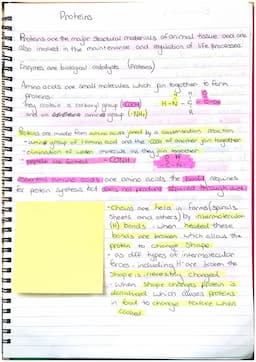 Proteins
Proteins are the major structural materials of animal tissue and are
also involved in the maintenance and regulation of life processes.
Enzymes are biological catalysts (proteins)
Amino acids are small molecules which join together to form
proteins.
they contain a carboxyl group (COOH)
and an amine group (-NH₂)
H-N-C
R
Proteins are made from amino acids joined by a condensation reaction
- amine group of 1 amino acid and the COOH of another join together
- elimination of water molecule as they join together
- peptide link formed - CONH
Essential amino acids are amino acids the body requires
for protein synthesis but does not produce
- Chains are held in forms (spirals,
sheets and others) by intermolecular
(H) bonds - when heated these
bonds are broken which allows the
protein to change shape
- as diff types of intermolecular
forces - including H are broken the
shape is irreversibly changed
- when shape changes protein is
denatured which causes proteins
in food to change texture when
cooked.